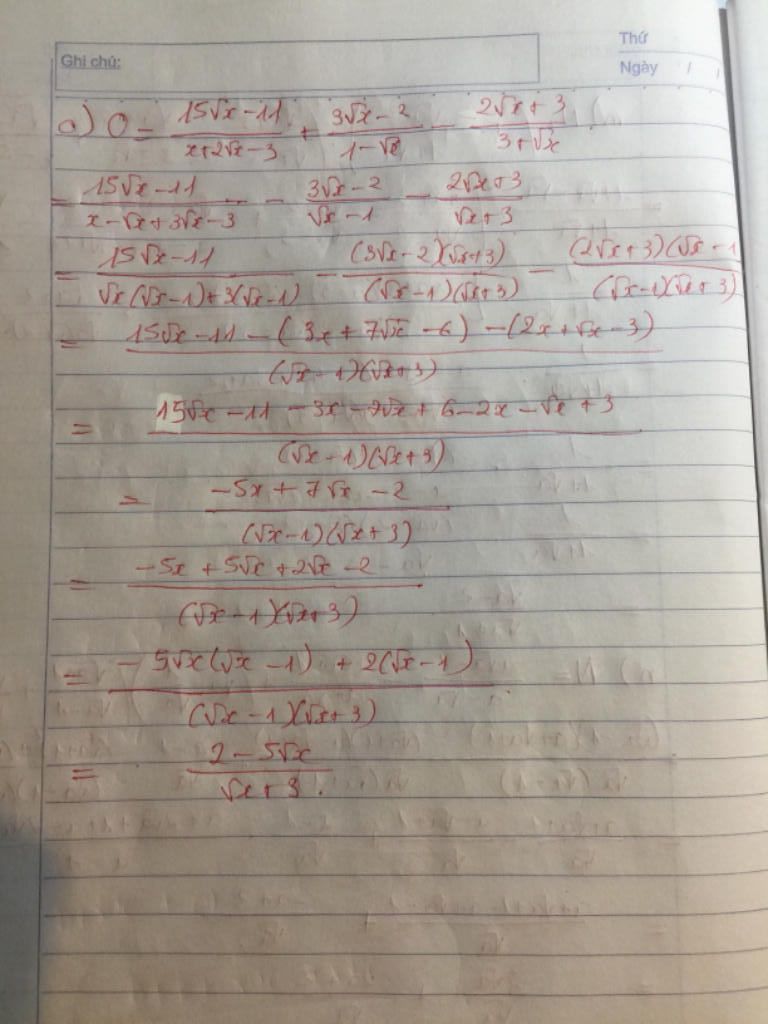 Thứ
Ghi chú:
Ngày / /
a) O = (15√x - 11)/(x + 2√x - 3) + (3√x - 2)/(1 - √x) - (2√x + 3)/(3 + √x)
= (15√x - 11)/(x - √x + 3√x - 3) - (3√x - 2)/(√x - 1) - (2√x + 3)/(√x + 3)
= (15√x - 11)/(√x(√x - 1) + 3(√x - 1)) - ((3√x - 2)(√x + 3))/((√x - 1)(√x + 3)) - ((2√x + 3)(√x - 1)/((√x - 1)(√x + 3))
= (15√x - 11 - (3x + 7√x - 6) - (2x + √x - 3))/((√x - 1)(√x + 3))
= (15√x - 11 - 3x - 7√x + 6 - 2x - √x + 3)/((√x - 1)(√x + 3))
= (-5x + 7√x - 2)/((√x - 1)(√x + 3))
= (-5x + 5√x + 2√x - 2)/((√x - 1)(√x + 3))
= (-5√x(√x - 1) + 2(√x - 1))/((√x - 1)(√x + 3))
= (2 - 5√x)/(√x + 3).